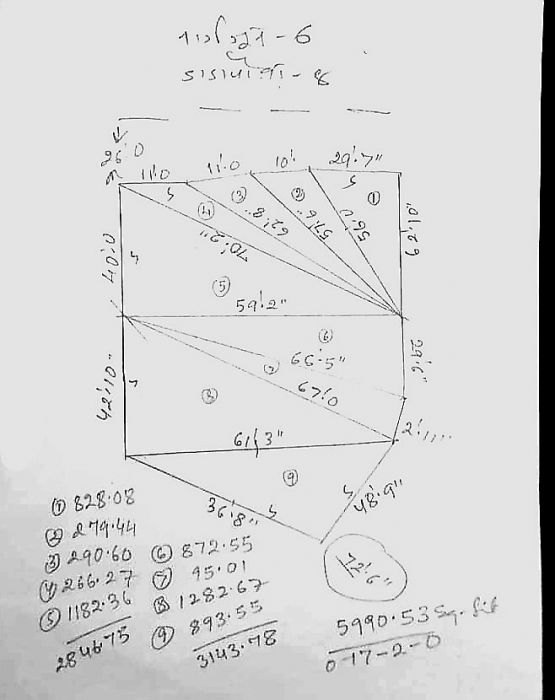 26'.0
11'.0 11'.0 10'. 29'.7"
① ② ③ ④
40'.0 70'.2" 62'.8" 57'.6" 56'.0 62'.10"
⑤
59'.2"
⑥ 29'.6"
66'.5"
⑦
67'.0
42'.10" ⑧
61'.3"
⑨
36'.8" 48'.9"
72'.6"
① 828.08
② 279.44
③ 290.60
④ 266.27
⑤ 1182.36
2846.75
⑥ 872.55
⑦ 95.01
⑧ 1282.67
⑨ 893.55
3143.78
5990.53 Sq. fit
0-17-2-0